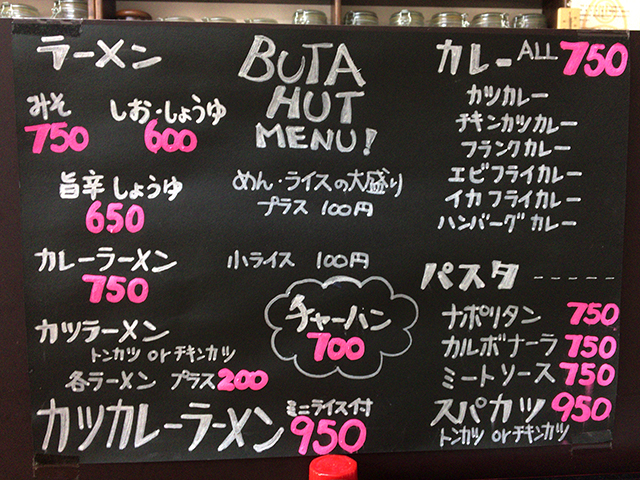 ラーメン
みそ
750
しお・しょうゆ
600
旨辛しょうゆ
650
カレーラーメン
750
カツラーメン
トンカツ or チキンカツ
各ラーメン プラス 200
カツカレーラーメン ミニライス付
950
BUTA
HUT
MENU!
めん・ライスの大盛り
プラス 100円
小ライス 100円
チャーハン
700
カレー ALL 750
カツカレー
チキンカツカレー
フランクカレー
エビフライカレー
イカフライカレー
ハンバーグカレー
パスタ -----
ナポリタン 750
カルボナーラ 750
ミートソース 750
スパカツ 950
トンカツ or チキンカツ